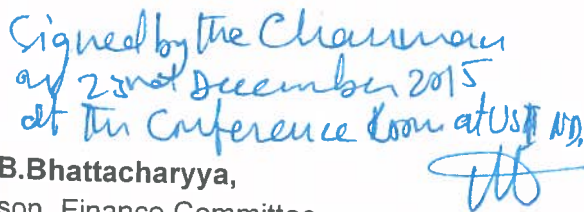 Signed by the Chairman
on 23nd December 2015
at the Conference Room at USI ND.
B.Bhattacharyya,
son, Finance Committee